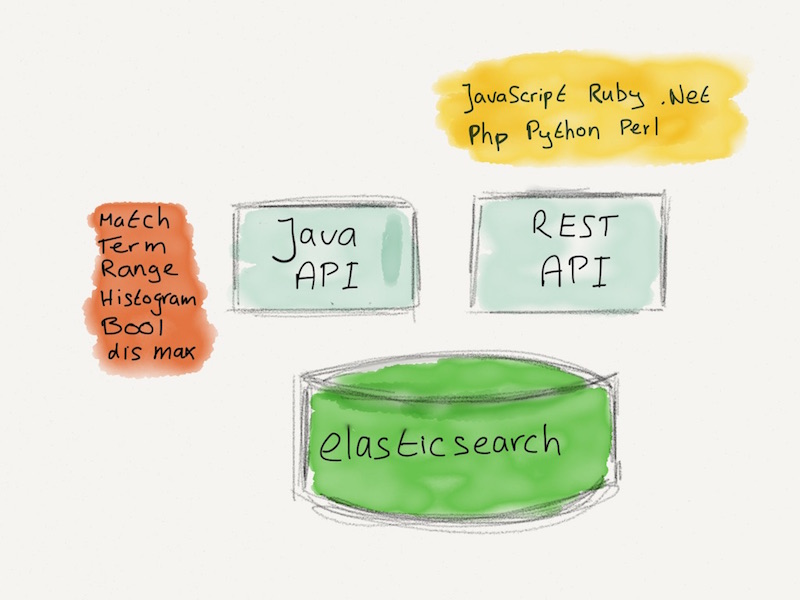 JavaScript Ruby .Net
Php Python Perl
Match
Term
Range
Histogram
Bool
dis max
Java
API
REST
API
elasticsearch